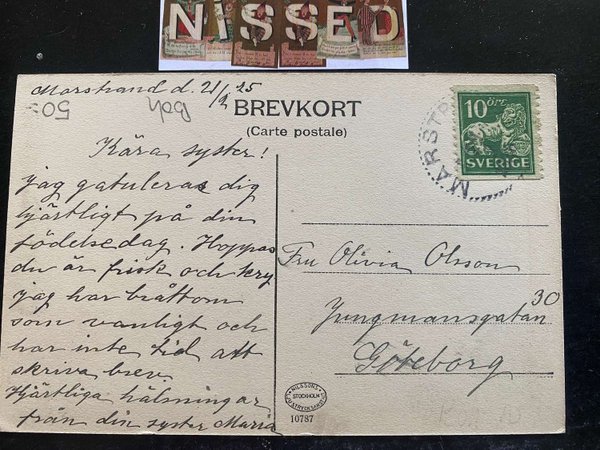 NISSED
Marstrand d. 21/2 25
50:-
BREVKORT
(Carte postale)
Kära syster!
jag gatuleras dig
hjärtligt på din
födelsedag. Hoppas
du är frisk och kry
jag har bråttom
som vanligt och
har inte tid att
skriva brev.
Hjärtliga hälsningar
från din syster Maria
MARSTR
10 ÖRE
SVERIGE
Fru Olivia Olsson
Jungmansgatan 30
Göteborg
NILSSONS
STOCKHOLM
10787